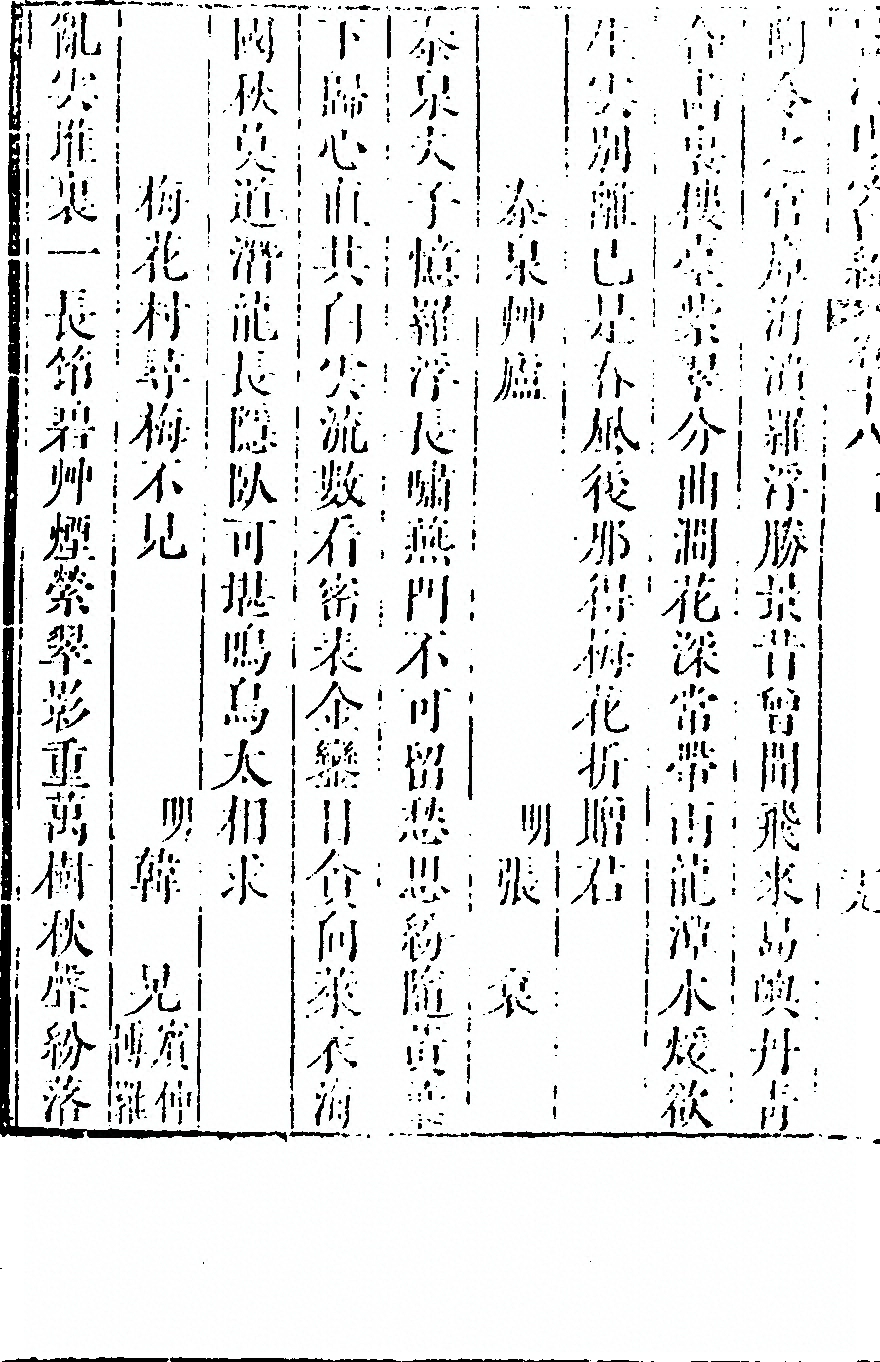 令之官岸海濱羅浮勝景昔曾聞飛來島嶼丹青
合畫裏樓臺紫翠分曲澗花深常帶雨龍潭水煖欲
生雲別離已是春風後那得梅花折贈君
泰泉艸廬 明張袞
泰泉夫子憶羅浮長嘯燕門不可留愁思紛隨黃葉
下歸心直共白雲流數看密表金鑾日貪向萊衣海
國秋莫道潛龍長隱臥可堪鳴鳥太相求
梅花村尋梅不見 明韓晃賓仲博羅
亂雲堆裏一長筇碧艸煙縈翠影重萬樹秋聲紛落